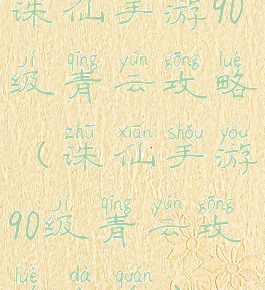 诛仙手游90
jí qīng yún gōng lüè
级青云攻略
zhū xiān shǒu yóu
(诛仙手游
jí qīng yún gōng
90级青云攻
lüè dà quán